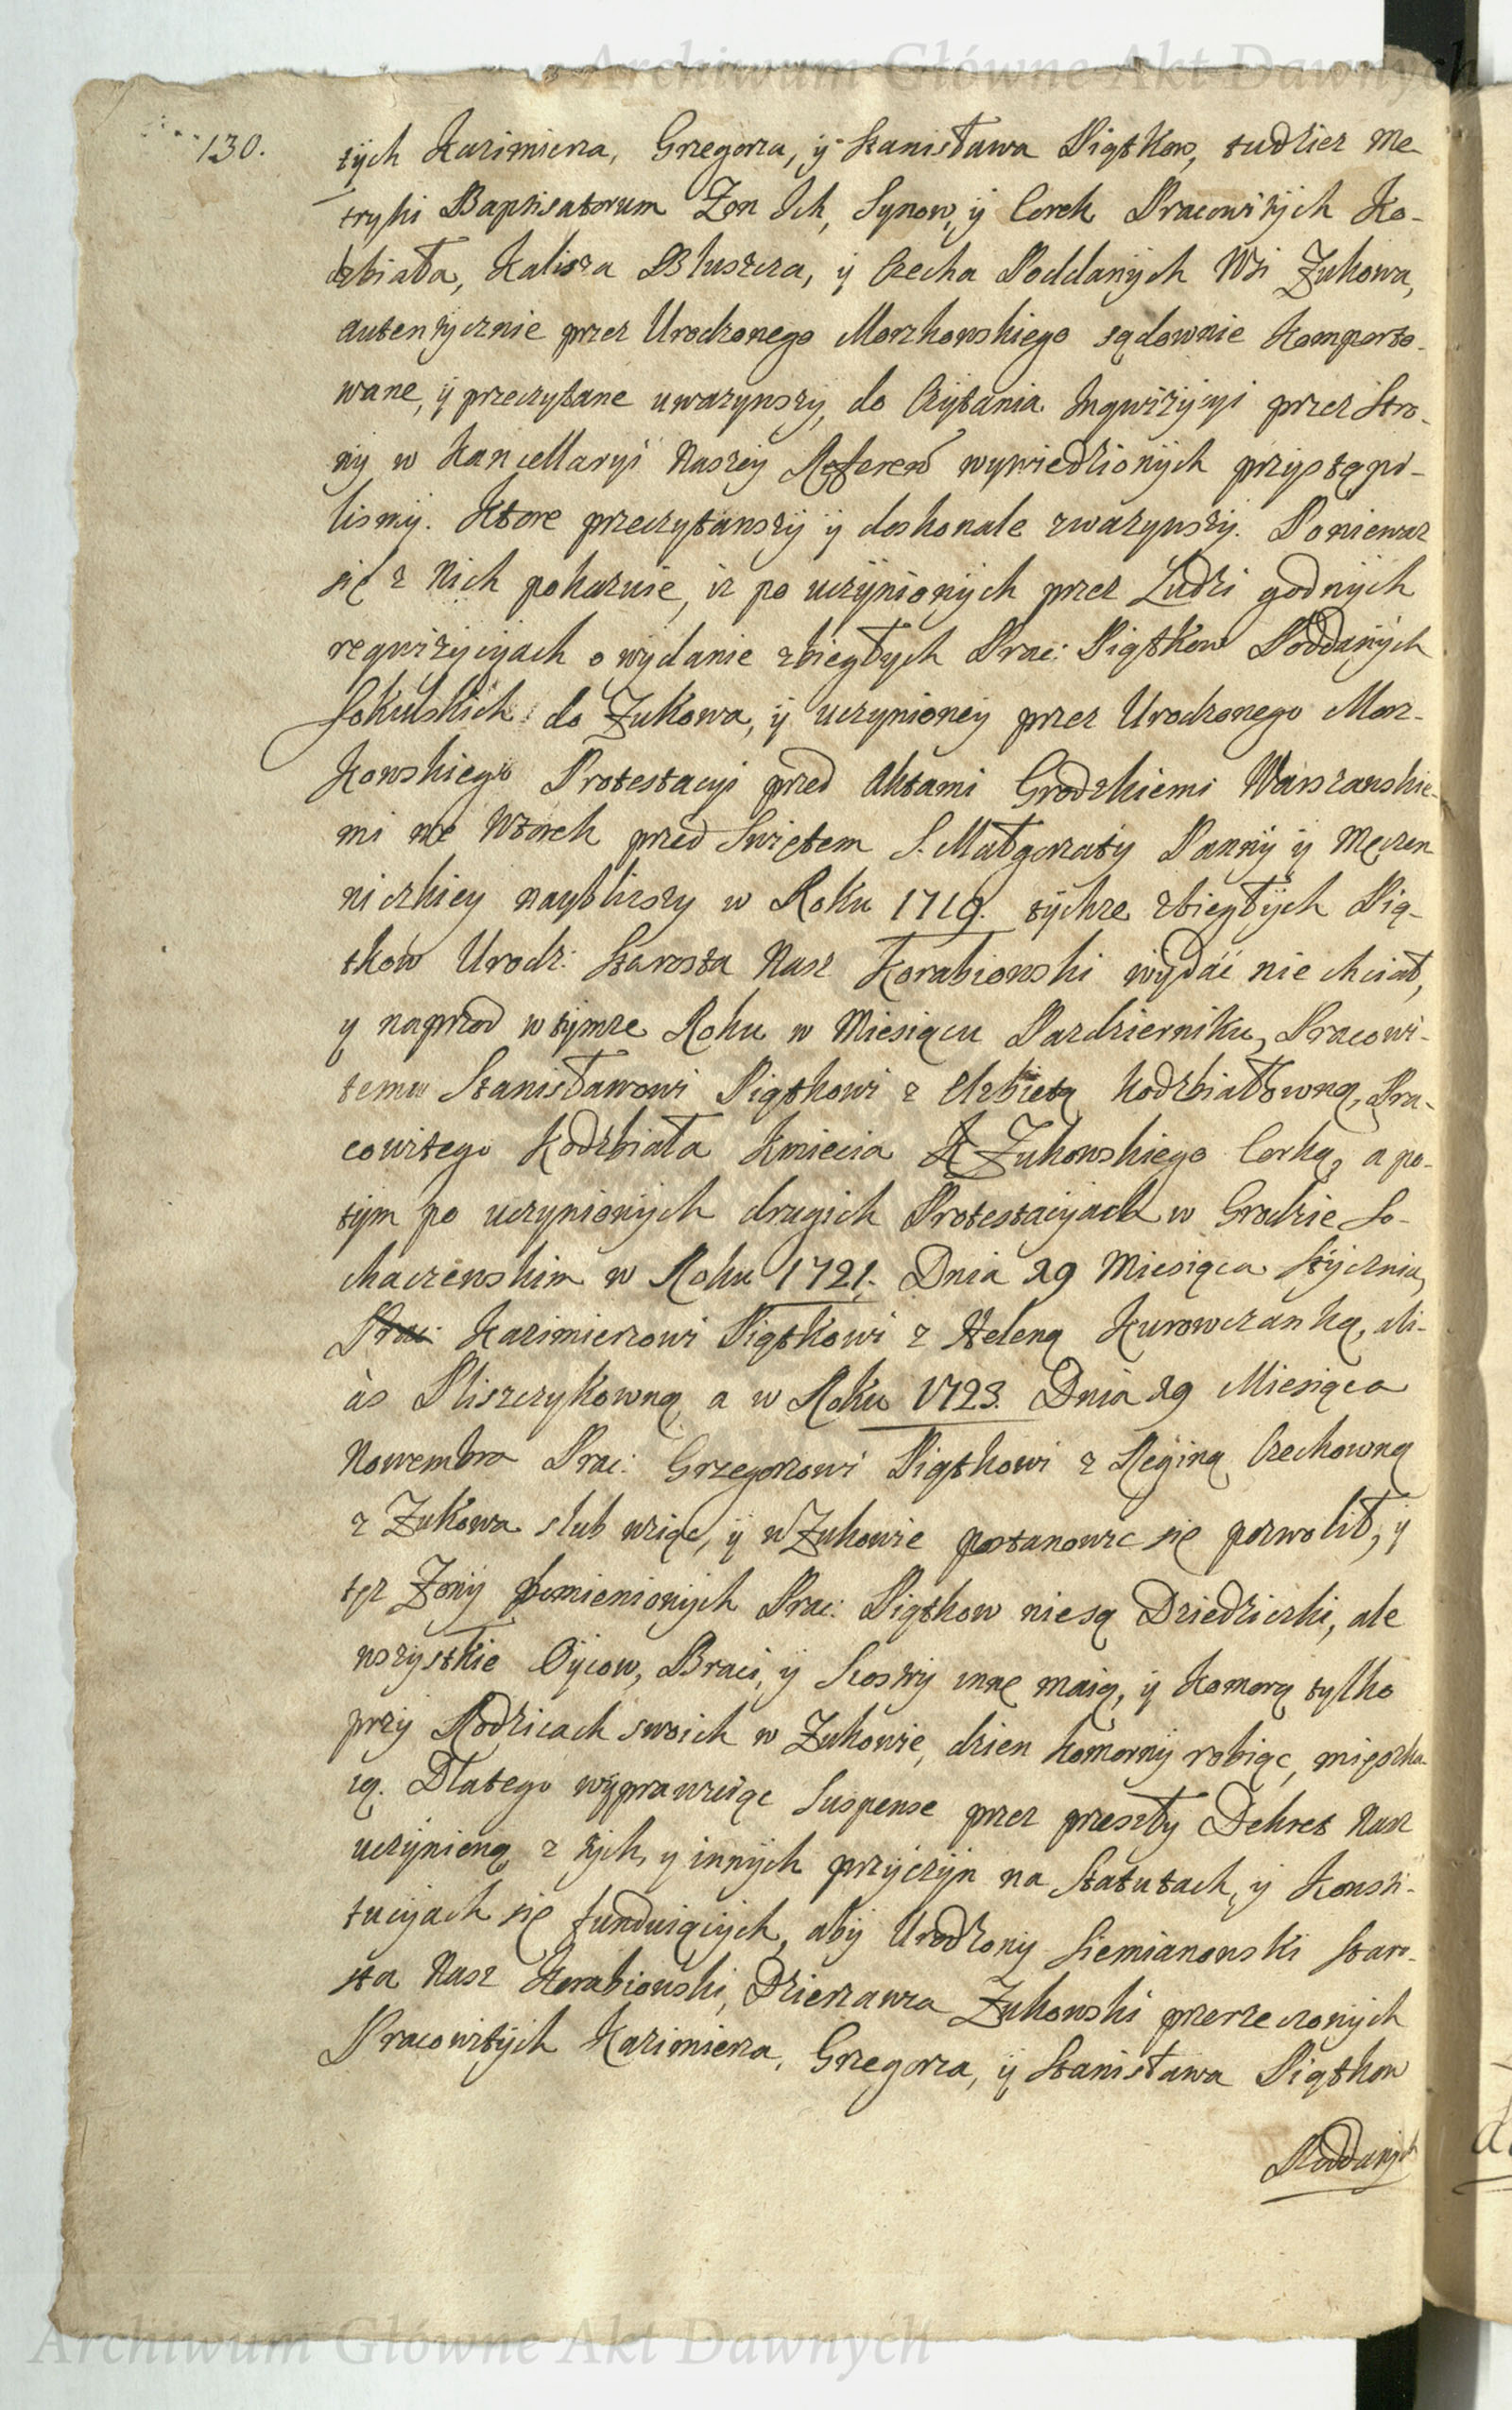 Archiwum Główne Akt Dawnych
130.
tych Kazimierza, Grzegorza, ÿ Stanisława Piątkow, tudziez Me-
tryki Baptisatorum Zon Ich, Synow, ÿ Corek Pracowitÿch Ko-
dzbiała, Kalisza Bluszcza, ÿ Czecha Poddanÿch Wsi Zukowa,
autentÿcznie przez Urodzonego Morzkowskiego sądownie komporto-
wane, ÿ przeczytane uwazÿwszy, do Czÿtania Inqwizÿcyi przez Stro-
nÿ w Kancellaryi Naszeÿ wywiedzionÿch przÿstąpi-
lismÿ. Ktore przeczytawszÿ ÿ doskonale zwazywszÿ. Poniewaz
się z Nich pokazuie, iz po uczÿnionÿch przez Ludzi godnÿch
reqwizÿcÿach o wÿdanie zbiegłÿch Prac: Piątkow Poddanÿch
Sokulskich do Zukowa, ÿ uczynioneÿ przez Urodzonego Morz-
kowskiego Protestacyi przed Aktami Grodzkiemi Warszawskie-
mi we Wtorek przed Swiętem S. Małgorzatÿ Pannÿ ÿ Męczen
niczkiey naybliszy w Roku 1719. tÿchze zbiegłÿch Pią-
tkow Urodz: Starosta Nasz Korabiowski wÿdać nie chciał,
y naprzod w tÿmze Roku w Miesiącu Pazdzierniku, Pracowi-
temu Stanisławowi Piątkowi z Elzbietą Kodzbiałowną, Pra-
cowitego Kodzbiała Kmiecia Zukowskiego Corką, a po-
tÿm po uczynionÿch drugich Protestacÿach w Grodzie So-
chaczewskim w Roku 1721. Dnia 29 Miesiąca Stÿcznia,
Prac: Kazimierzowi Piątkowi z Heleną Kurowczanką, ali-
às Pliszczykowną a w Roku 1723. Dnia 29 Miesiąca
Nowembra Prac: Grzegorzowi Piątkowi z Reginą Czechowną
z Zukowa slub wziąc, ÿ w Zukowie postanowic się pozwolił, ÿ
tez Zonÿ pomienionÿch Prac: Piątkow niesą Dziedziczki, ale
wszystkie Oÿcow, Braci, ÿ Siostrÿ inne maią, ÿ Komorą tylko
przÿ Rodzicach swoich w Zukowie, dzien komornÿ robiąc, mięszka-
ią. Dlatego wÿprawuiąc Suspense przez przeszłÿ Dekret Nasz
uczÿnioną z tÿch, y innÿch przÿczÿn na Statutach, ÿ Konsti-
tucÿach się funduiącÿch, abÿ Urodzonÿ Siemianowski Staro-
sta Nasz Korabiowski, Dzierzawca Zukowski przerzeczonÿch
Pracowitÿch Kazimierza, Grzegorza, ÿ Stanisława Piątkow
Poddanÿch
Archiwum Główne Akt Dawnych